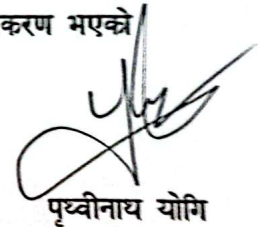 करण भएको
पृथ्वीनाथ योगि